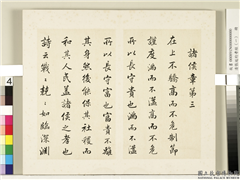 諸侯章第三
在上不驕高而不危制節
謹度滿而不溢高而不危
所以長守貴也滿而不溢
所以長守富也富貴不離
其身然後能保其社稷而
和其人民蓋諸侯之孝也
詩云戰〻兢〻如臨深淵